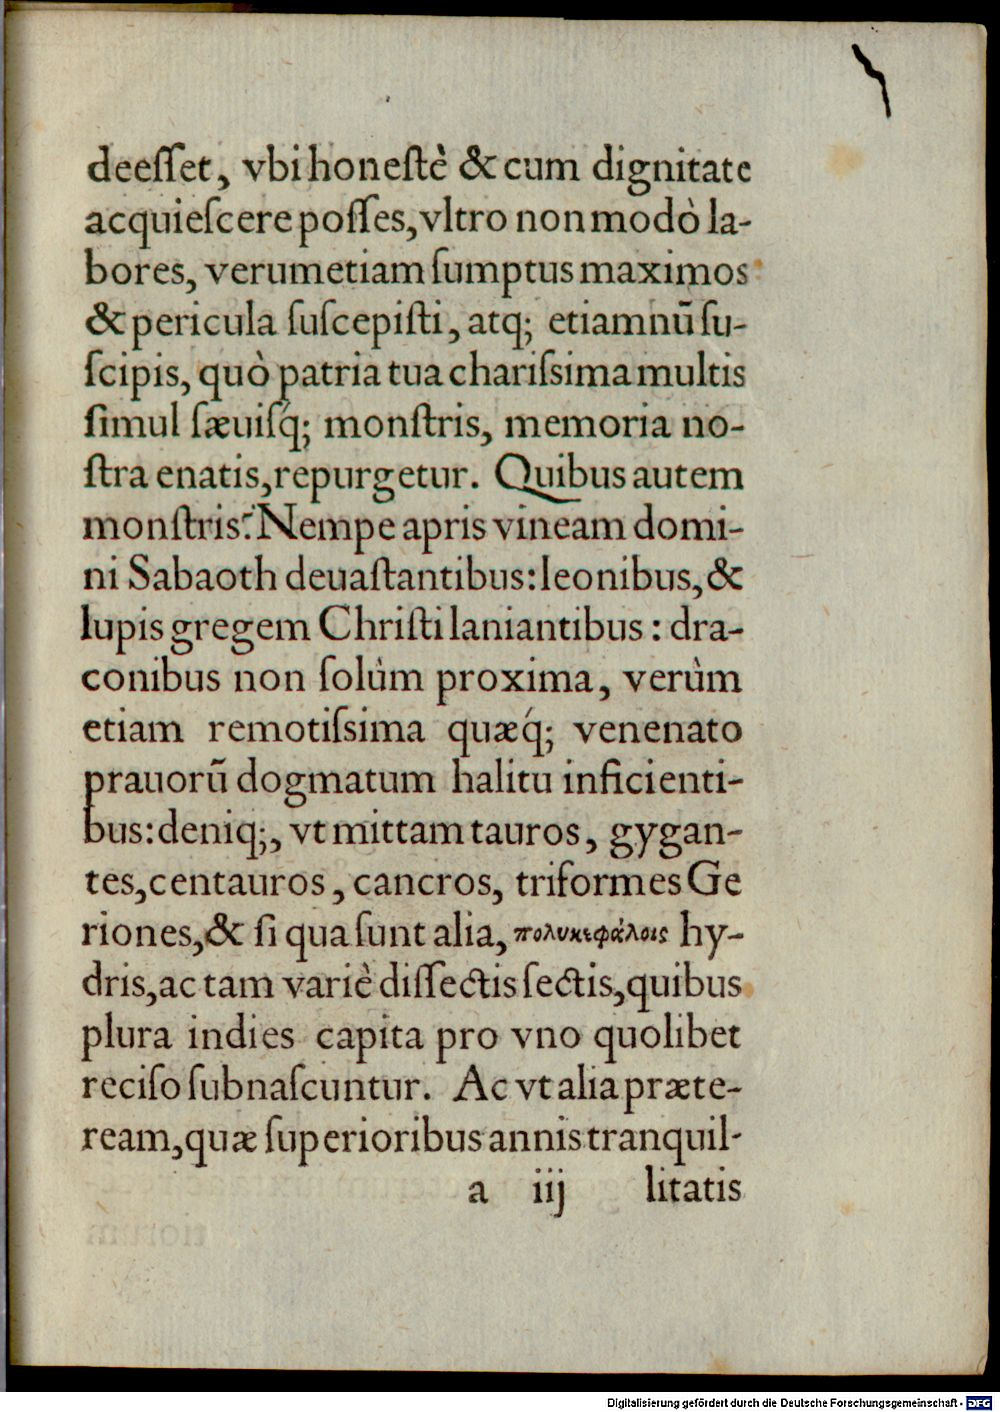 deeſſet, vbi honeſtè & cum dignitate
acquieſcere poſſes, vltro non modò la-
bores, verumetiam ſumptus maximos
& pericula ſuſcepiſti, atq; etiamnū ſu-
ſcipis, quò patria tua chariſsima multis
ſimul ſæuiſq́; monſtris, memoria no-
ſtra enatis, repurgetur. Quibus autem
monſtris? Nempe apris vineam domi-
ni Sabaoth deuaſtantibus: leonibus, &
lupis gregem Chriſti laniantibus: dra-
conibus non ſolùm proxima, verùm
etiam remotiſsima quæq́; venenato
prauorū dogmatum halitu inficienti-
bus: deniq;, vt mittam tauros, gygan-
tes, centauros, cancros, triformes Ge
riones, & ſi qua ſunt alia, πολυκεφάλοις hy-
dris, ac tam variè diſſectis ſectis, quibus
plura indies capita pro vno quolibet
reciſo ſubnaſcuntur. Ac vt alia præte-
ream, quæ ſuperioribus annis tranquil-
a iij litatis
Digitalisierung gefördert durch die Deutsche Forschungsgemeinschaft - DFG